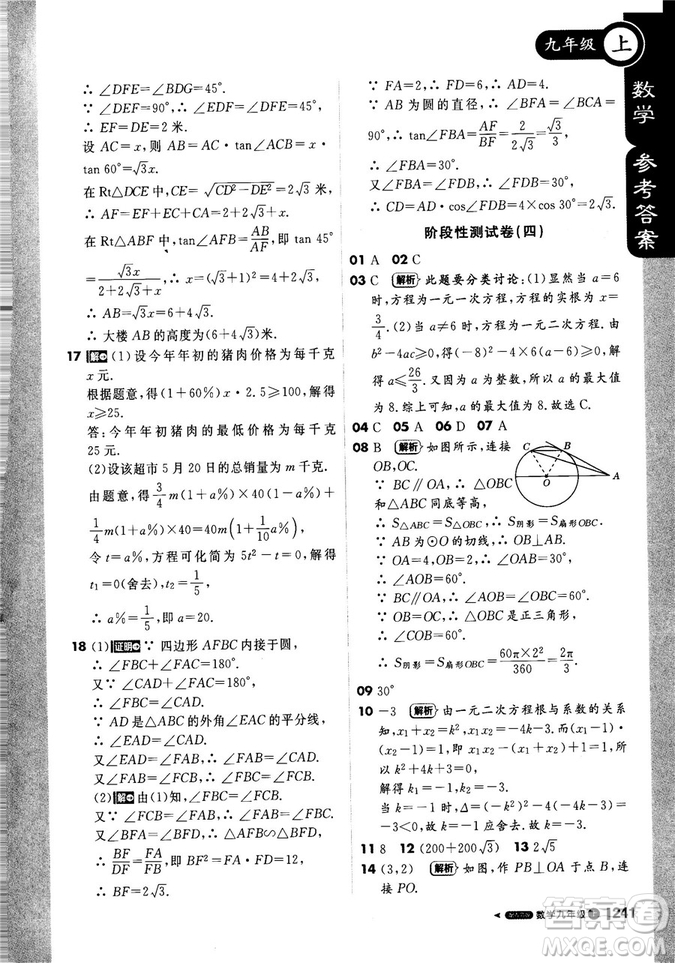 九年级 上
数学 参考答案
∴ ∠DFE=∠BDG=45°.
∵ ∠DEF=90°,∴ ∠EDF=∠DFE=45°.
∴ EF=DE=2 米.
设 AC=x,则 BC=AC·tan∠ACB=x·
tan 60°=√3x.
在 Rt△DCE 中,CE=√(CD²-DE²)=2√3 米,
在 Rt△ABF 中,∵ tan∠AFB=AB/AF,即 tan 45°
=√3x/(2+2√3+x),∴ x=(√3+1)²=4+2√3.
∴ AB=√3x=6+4√3.
∴ 大楼 AB 的高度为(6+4√3)米.
17 解 (1)设今年年初的猪肉价格为每千克
x 元.
根据题意,得(1+60%)x·2.5≥100.解得
x≥25.
答:今年年初猪肉的最低价格为每千克
25 元.
(2)设该超市 5 月 20 日的总销量为 m 千克.
由题意,得 3/4 m(1+a%)×40(1-a%)+
1/4 m(1+a%)×40=40m(1+1/10 a%).
令 t=a%,方程可化简为 5t²-t=0.解得
t₁=0(舍去),t₂=1/5,
∴ a%=1/5,即 a=20.
18 (1)证明 ∵ 四边形 AFBC 内接于圆,
∴ ∠FBC+∠FAC=180°.
又∵ ∠CAD+∠FAC=180°,
∴ ∠FBC=∠CAD.
∵ AD 是△ABC 的外角∠EAC 的平分线,
∴ ∠EAD=∠CAD.
又∵ ∠EAD=∠FAB,∴ ∠FAB=∠CAD.
又∵ ∠FAB=∠FCB,∴ ∠FBC=∠FCB.
(2)解 由(1)知,∠FBC=∠FCB.
又∵ ∠FCB=∠FAB,∴ ∠FAB=∠FBC.
又∵ ∠BFA=∠BFD,∴ △AFB∽△BFD,
∴ BF/DF=FA/FB,即 BF²=FA·FD=12,
∴ BF=2√3.
∵ FA=2,∴ FD=6,AD=4.
∵ AB 为圆的直径,∴ ∠BFA=∠BCA=
90°,∴ tan∠FBA=AF/BF=2/(2√3)=√3/3,
∴ ∠FBA=30°.
又∵ ∠FDB=∠FBA=30°,
∴ CD=AD·cos∠FDB=4×cos 30°=2√3.
阶段性测试卷(四)
01 A 02 C
03 C 解析 此题要分类讨论:(1)显然当 a=6
时,方程为一元一次方程,方程的实根为 x=
3/4.(2)当 a≠6 时,方程为一元二次方程.由
b²-4ac≥0,得(-8)²-4(a-6)×6≥0.解
得 a≤26/3.又因为 a 是整数,所以 a 的最大值
为 8.综上可知,a 的最大值为 8.故选 C.
04 C 05 A 06 D 07 A
08 B 解析 如图所示,连接
OB,OC.
∵ BC∥OA,∴ △OBC
和△ABC 同底等高,
∴ S△ABC=S△OBC,∴ S阴影=S扇形OBC.
∵ AB 为⊙O 的切线,∴ OB⊥AB.
∵ OA=4,OB=2,∴ ∠AOB=60°.
∵ BC∥OA,∴ ∠AOB=∠OBC=60°.
∵ OB=OC,∴ △OBC 为正三角形,
∴ ∠COB=60°,
∴ S阴影=S扇形OBC=60π×2²/360=2π/3.
C B
O A
09 30°
10 -3 解析 由一元二次方程根与系数的关系
知,x₁+x₂=k²,x₁x₂=k+2.由(x₁-1)
·(x₂-1)=8,得 x₁x₂-(x₁+x₂)-7=0,
即 k²-k+5=0.
解得 k₁=-1,k₂=-3.
当 k=-1 时,Δ=k⁴-4(k+2)=1-4=
-3<0,故 k=-1 应舍去.∴ k=-3.
11 8 12 (200+200√3) 13 2√5
14 (3,2) 解析 如图,作 PB⊥OA 于点 B,连
接 PO.
数学九年级 上 1241
答案圈
MXQE.COM